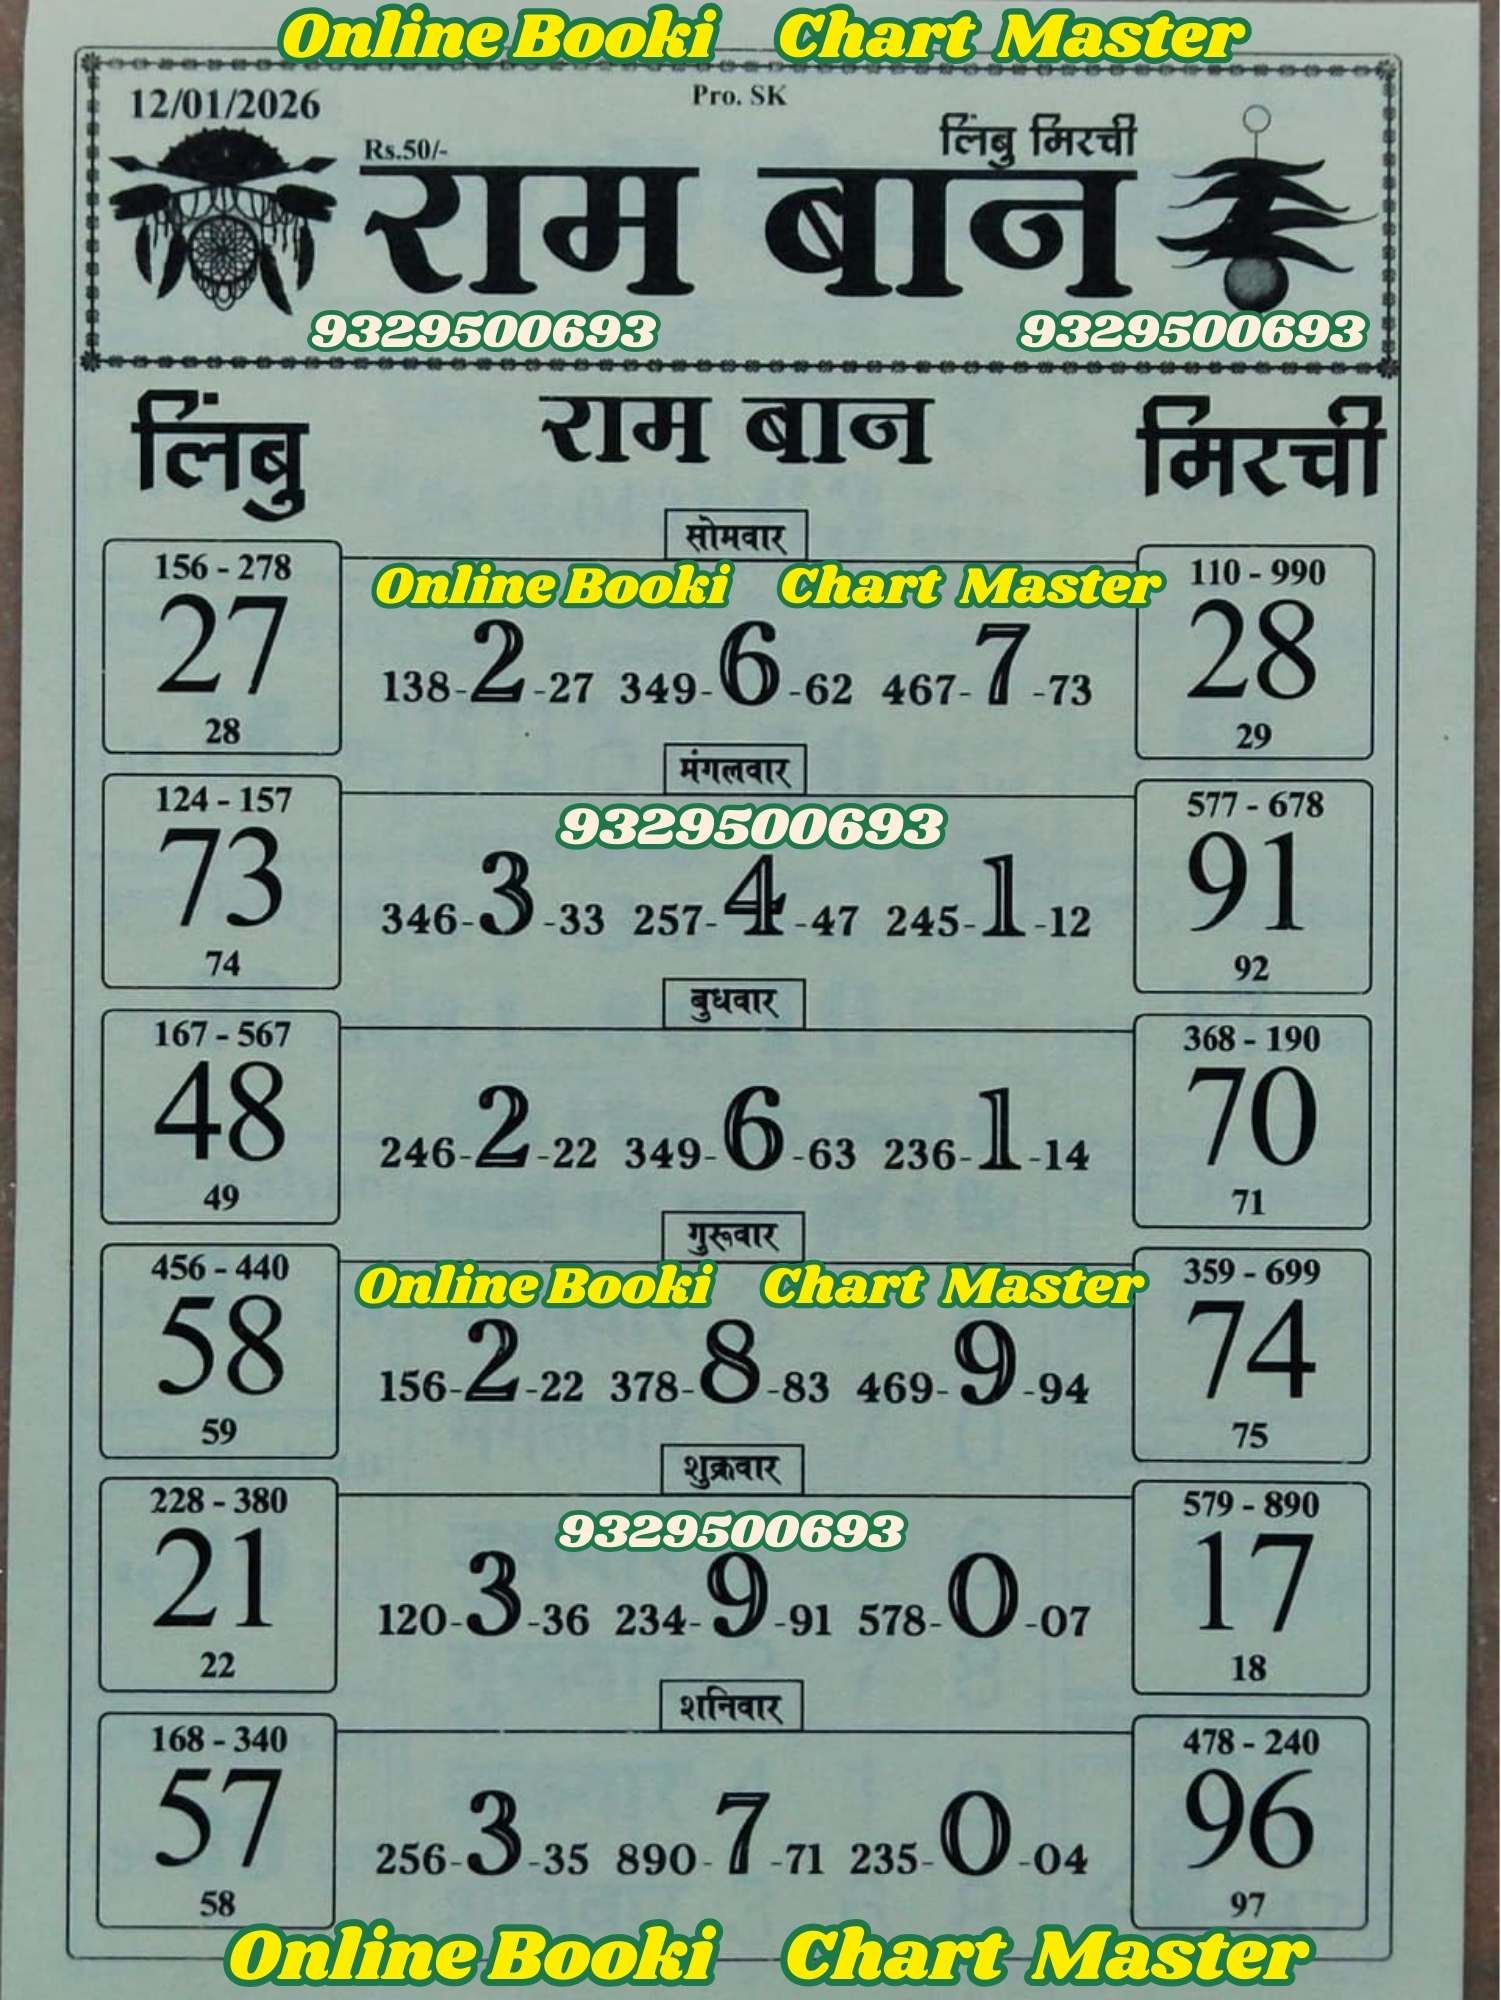 Online Booki Chart Master
12/01/2026
Pro. SK
Rs.50/-
लिंबु मिरची
राम बान
9329500693 9329500693
लिंबु राम बान मिरची
सोमवार
156 - 278 Online Booki Chart Master 110 - 990
27 138-2-27 349-6-62 467-7-73 28
28 29
मंगलवार
124 - 157 9329500693 577 - 678
73 346-3-33 257-4-47 245-1-12 91
74 92
बुधवार
167 - 567 368 - 190
48 246-2-22 349-6-63 236-1-14 70
49 71
गुरूवार
456 - 440 Online Booki Chart Master 359 - 699
58 156-2-22 378-8-83 469-9-94 74
59 75
शुक्रवार
228 - 380 9329500693 579 - 890
21 120-3-36 234-9-91 578-0-07 17
22 18
शनिवार
168 - 340 478 - 240
57 256-3-35 890-7-71 235-0-04 96
58 97
Online Booki Chart Master